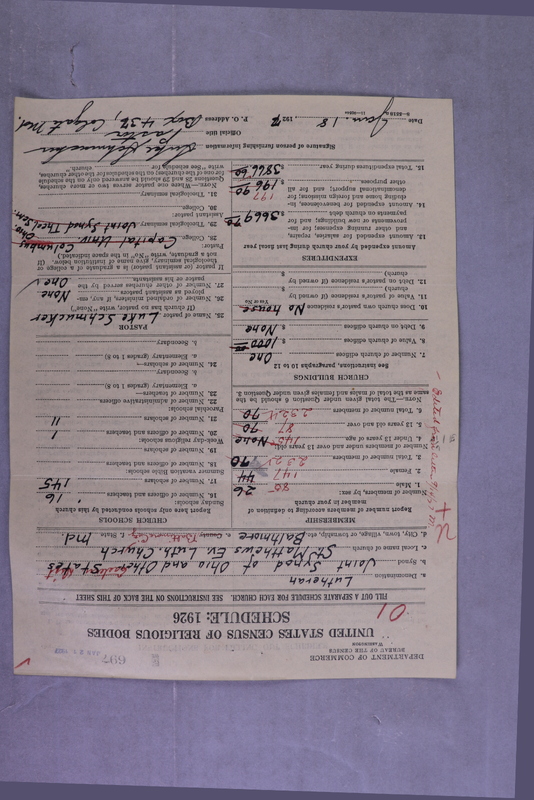 DEPARTMENT OF COMMERCE
BUREAU OF THE CENSUS
WASHINGTON
697
UNITED STATES CENSUS OF RELIGIOUS BODIES
SCHEDULE: 1926
01
FILL OUT A SEPARATE SCHEDULE FOR EACH CHURCH. SEE INSTRUCTIONS ON THE BACK OF THIS SHEET
a. Denomination Lutheran
b. Synod Joint Synod of Ohio and Other States
c. Local name of church St. Matthews Ev. Luth. Church
d. City, town, village, or township, etc. Baltimore e. County Baltimore City f. State Md.
MEMBERSHIP
Report number of members according to definition of member in your church
Number of members, by sex:
1. Male 80 26
2. Female 147 44
3. Total number of members 232 70
Number of members under and over 13 years of age:
4. Under 13 years of age 145 None
5. 13 years and over 87 70
6. Total number of members 232 70
NOTE.—The total given under Question 6 should be the same as the total of males and females given under Question 3.
CHURCH BUILDINGS
See instructions, paragraphs 10 to 12
7. Number of church edifices One
8. Value of church edifices $ 1000.00
9. Debt on church edifices $ None
10. Does church own pastor's residence? No house
Yes or No
11. Value of pastor's residence (if owned by church) $
12. Debt on pastor's residence (if owned by church) $
EXPENDITURES
Amount expended by your church during last fiscal year
13. Amount expended for salaries, repairs, and other running expenses; for improvements or new buildings; and for payments on church debt $ 3669.70
14. Amount expended for benevolence, including home and foreign missions; for denominational support; and for all other purposes $ 196.90
15. Total expenditures during year $ 3866.60
CHURCH SCHOOLS
Report here only schools conducted by this church
Sunday schools:
16. Number of officers and teachers 16
17. Number of scholars 145
Summer vacation Bible schools:
18. Number of officers and teachers
19. Number of scholars
Week-day religious schools:
20. Number of officers and teachers 1
21. Number of scholars 11
Parochial schools:
22. Number of administrative officers
23. Number of teachers—
a. Elementary (grades 1 to 8)
b. Secondary
24. Number of scholars—
a. Elementary (grades 1 to 8)
b. Secondary
PASTOR
25. Name of pastor Luke Schmucker
(If church has no pastor, write "None")
26. Number of ordained ministers, if any, employed as assistant pastors None
27. Number of other churches served by the pastor or his assistants One
If pastor (or assistant pastor) is a graduate of a college or theological seminary, give name of institution below. (If not a graduate, write "No" in the space indicated.)
Pastor:
28. College Capital Univ. Columbus Ohio
29. Theological seminary Joint Synod Theol. Sem.
Assistant pastor:
30. College
31. Theological seminary
NOTE.—Where one pastor serves two or more churches, Questions 28 and 29 should be answered only on the schedule for one of the churches; on the schedules for the other churches, write "See schedule for church."
Signature of person furnishing information Luke Schmucker
Official title Pastor
Date Jan. 18 1927 P. O. Address Box 437, Colgate Md.